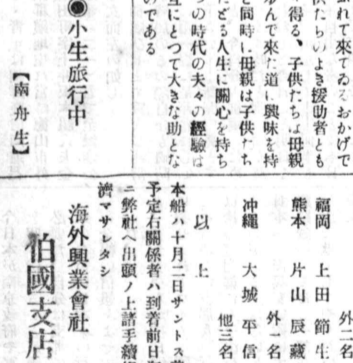 れて來てゐるおかげで
供たちのよき援助者とも
得る、子供たちは母親
んで來た道に興味を持
と同時に母親は子供たち
どる人生に關心を持ち
つの時代の夫々の經驗は
互にとつて大きな助とな
のである
◉小生旅行中
【南舟生】
外二名
福岡 上田節生
熊本 片山辰藏
外一名
沖繩 大城平信
他三名
以上
本船ハ十月二日サントス
予定右關係者ハ到着前日
ニ弊社ヘ出頭ノ上諸手續
濟マサレタシ
海外興業會社
伯國支店